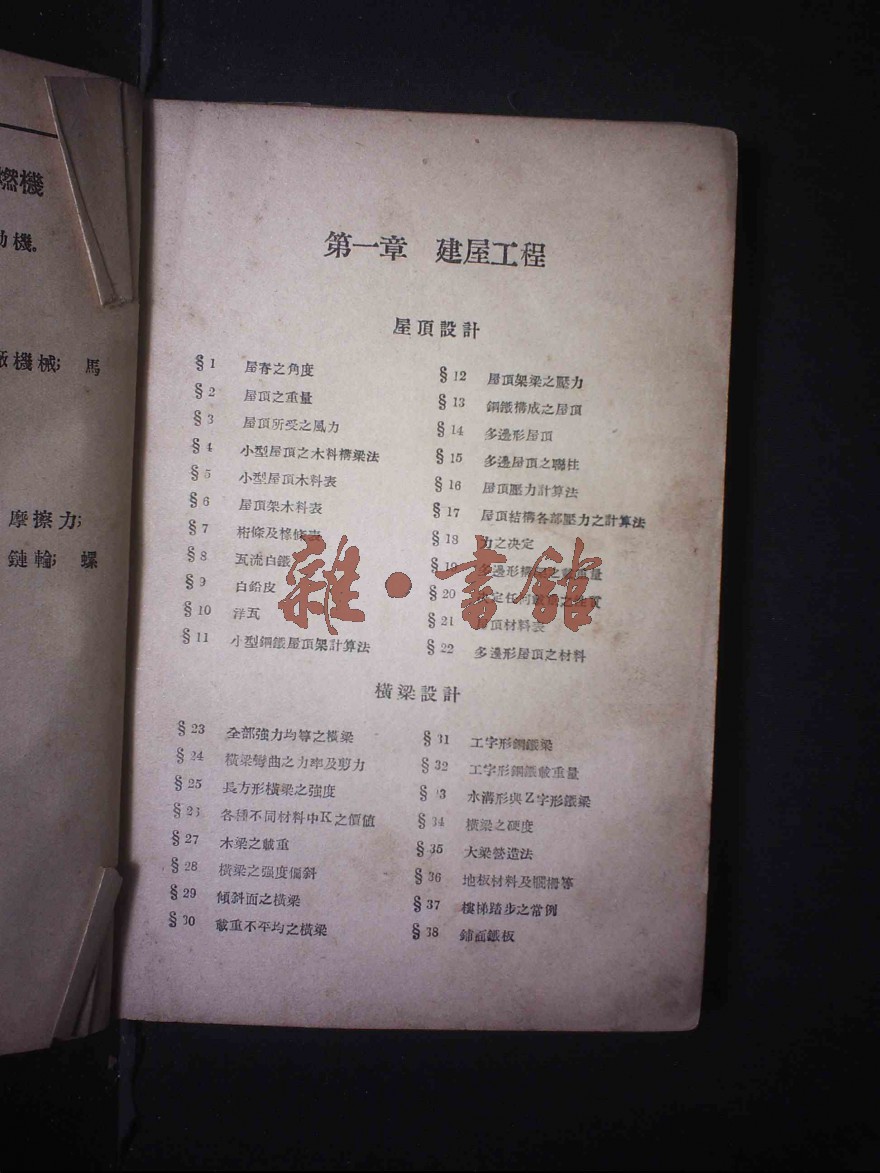 燃機
動機。
廠機械; 馬
摩擦力;
鏈輪; 螺
第一章 建屋工程
屋頂設計
§ 1 屋脊之角度
§ 2 屋頂之重量
§ 3 屋頂所受之風力
§ 4 小型屋頂之木料構梁法
§ 5 小型屋頂木料表
§ 6 屋頂架木料表
§ 7 桁條及椽條表
§ 8 瓦流白鐵
§ 9 白鉛皮
§ 10 洋瓦
§ 11 小型鋼鐵屋頂架計算法
§ 12 屋頂架梁之壓力
§ 13 鋼鐵構成之屋頂
§ 14 多邊形屋頂
§ 15 多邊屋頂之聯柱
§ 16 屋頂壓力計算法
§ 17 屋頂結構各部壓力之計算法
§ 18 力之決定
§ 19 多邊形構
§ 20
§ 21 屋頂材料表
§ 22 多邊形屋頂之材料
雜·書館
橫梁設計
§ 23 全部強力均等之橫梁
§ 24 橫梁彎曲之力率及剪力
§ 25 長方形橫梁之強度
§ 26 各種不同材料中K之價值
§ 27 木梁之載重
§ 28 橫梁之强度偏斜
§ 29 傾斜面之橫梁
§ 30 載重不平均之橫梁
§ 31 工字形鋼鐵梁
§ 32 工字形鋼鐵載重量
§ 33 水溝形與Z字形鐵梁
§ 34 橫梁之硬度
§ 35 大梁營造法
§ 36 地板材料及關柵等
§ 37 樓梯踏步之常例
§ 38 鋪面鐵板